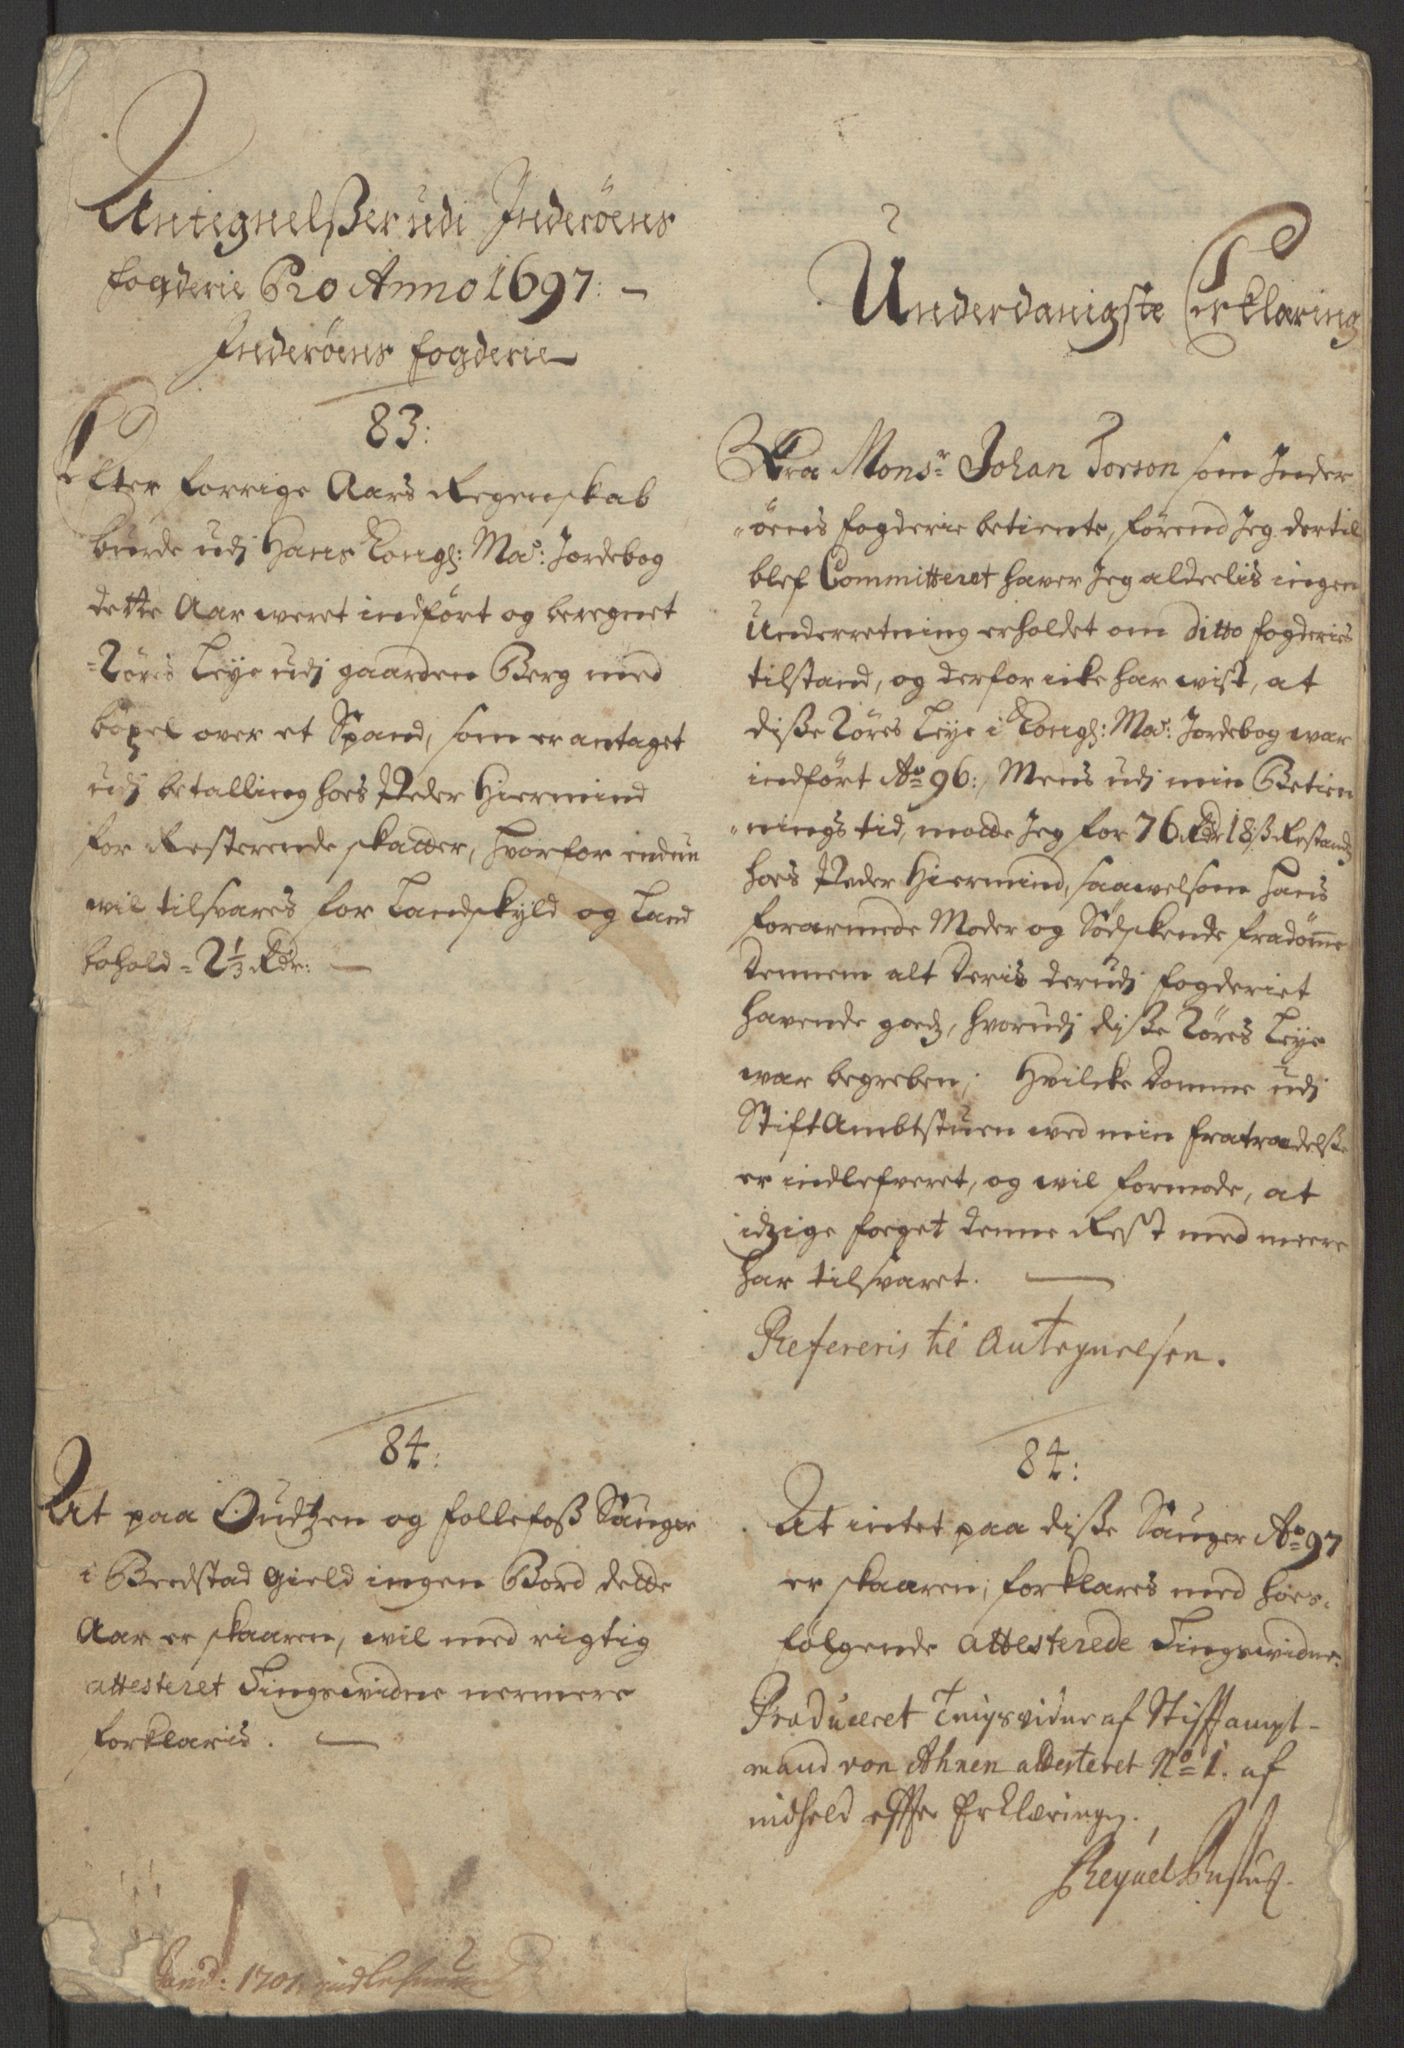 Antegnelßer udi Inderöens
fogderie Pro Anno 1697: —
Inderöens fogderie
83:
Efter forrige Aars Regenskab
burde udj Hans Kongl: Ma: Jordebog
dette Aar weret indført og beregnet
2 öris Leye udj gaarden Berg med
böxel over et Spand, som er antaget
udj betalling hoes Peder Hiermind
for Resterende skatter, hvorfor endnu
wil tilsvares for Landskyld og Land
bohold = 2⅓ Rdr: —
84:
At paa Oudtzen og follefoß Sauger
i Beedstad gield ingen Bord dette
Aar er skaaren, wil med rigtig
attesteret Tingswidne nermere
forklaris. —
1701 indlefweret
Underdanigste Erklæring
Fra Monsr Johan Torson som Inder
öens fogderie betiente, förend Jeg dertil
blef Committeret haver Jeg aldeelis ingen
Underretning erholdet om ditto fogderies
tilstand, og derfor icke har wist, at
diße 2 öres Leye i Kongl: Ma: Jordebog war
indført Ao 96:, Mens udj min Betien
nings tid, motte Jeg for 76 Rdr 18 ß Restands
hoes Peder Hiermind, saawelsom hans
forarmede Moder og Södskende fradömme
dennem alt deris derudj fogderiet
havende goedz, hvorudj diße 2 öres Leye
war begreben; Hvilcke domme udj
StiftAmbtstuen wed min fratrædelße
er indlefveret, og wil formode, at
idzige foeget denne Rest med meere
har tilsvaret. —
Refereris til Antegnelsen.
84:
At intet paa diße Sauger Ao 97
er skaaren, forklares med hoes-
følgende attesterede Tingswidne.
Produceret Tingsvidne af Stifftampt-
mand von Ahnen attesteret No 1. af
indhold effter Erklæringen.